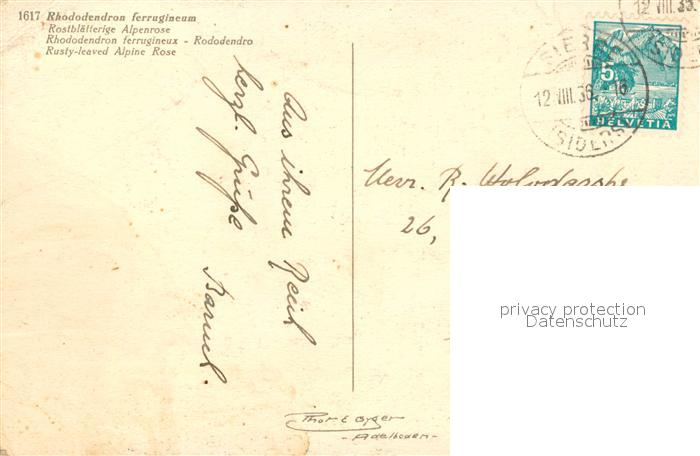 1617 Rhododendron ferrugineum
Rostblätterige Alpenrose
Rhododendron ferrugineux - Rododendro
Rusty-leaved Alpine Rose
12 VIII. 36
5
SIERRE
12 VIII. 36. 16
SIDERS
HELVETIA
Aus ihrem Reich
herzl. Grüße
Herr. R.
26,
privacy protection
Datenschutz
Phot E Gyger
- Adelboden -